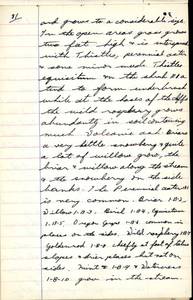 31
and grows to a considerable size
In the open areas grass grows
two feet high & is intergrown
with Thistle, perennial aster
& some minor weeds. Thistles
equisitum on the shale also
tend to form underbrush
while at the bases of the cliffs
the wild raspberry grows
abundantly in soil containing
much Volcanic ash. Briar
a very little snowberry & quite
a lot of willow grow, the
briar & willow along the stream
& the snowberry on the side
banks. The Perennial aster
is very common. Briar 1.0.2,
Willow 1.0.3. Birch 1.0.4,
1.0.5. Oregon Grape 1.0.6 common in
places on the sides. Wild raspberry 1.0.7
Goldenrod 1.0.8 chiefly at foot of talus
slopes & drier places but not on
sides. Mint 1.0.9 &
1.0.10. grow in the stream.